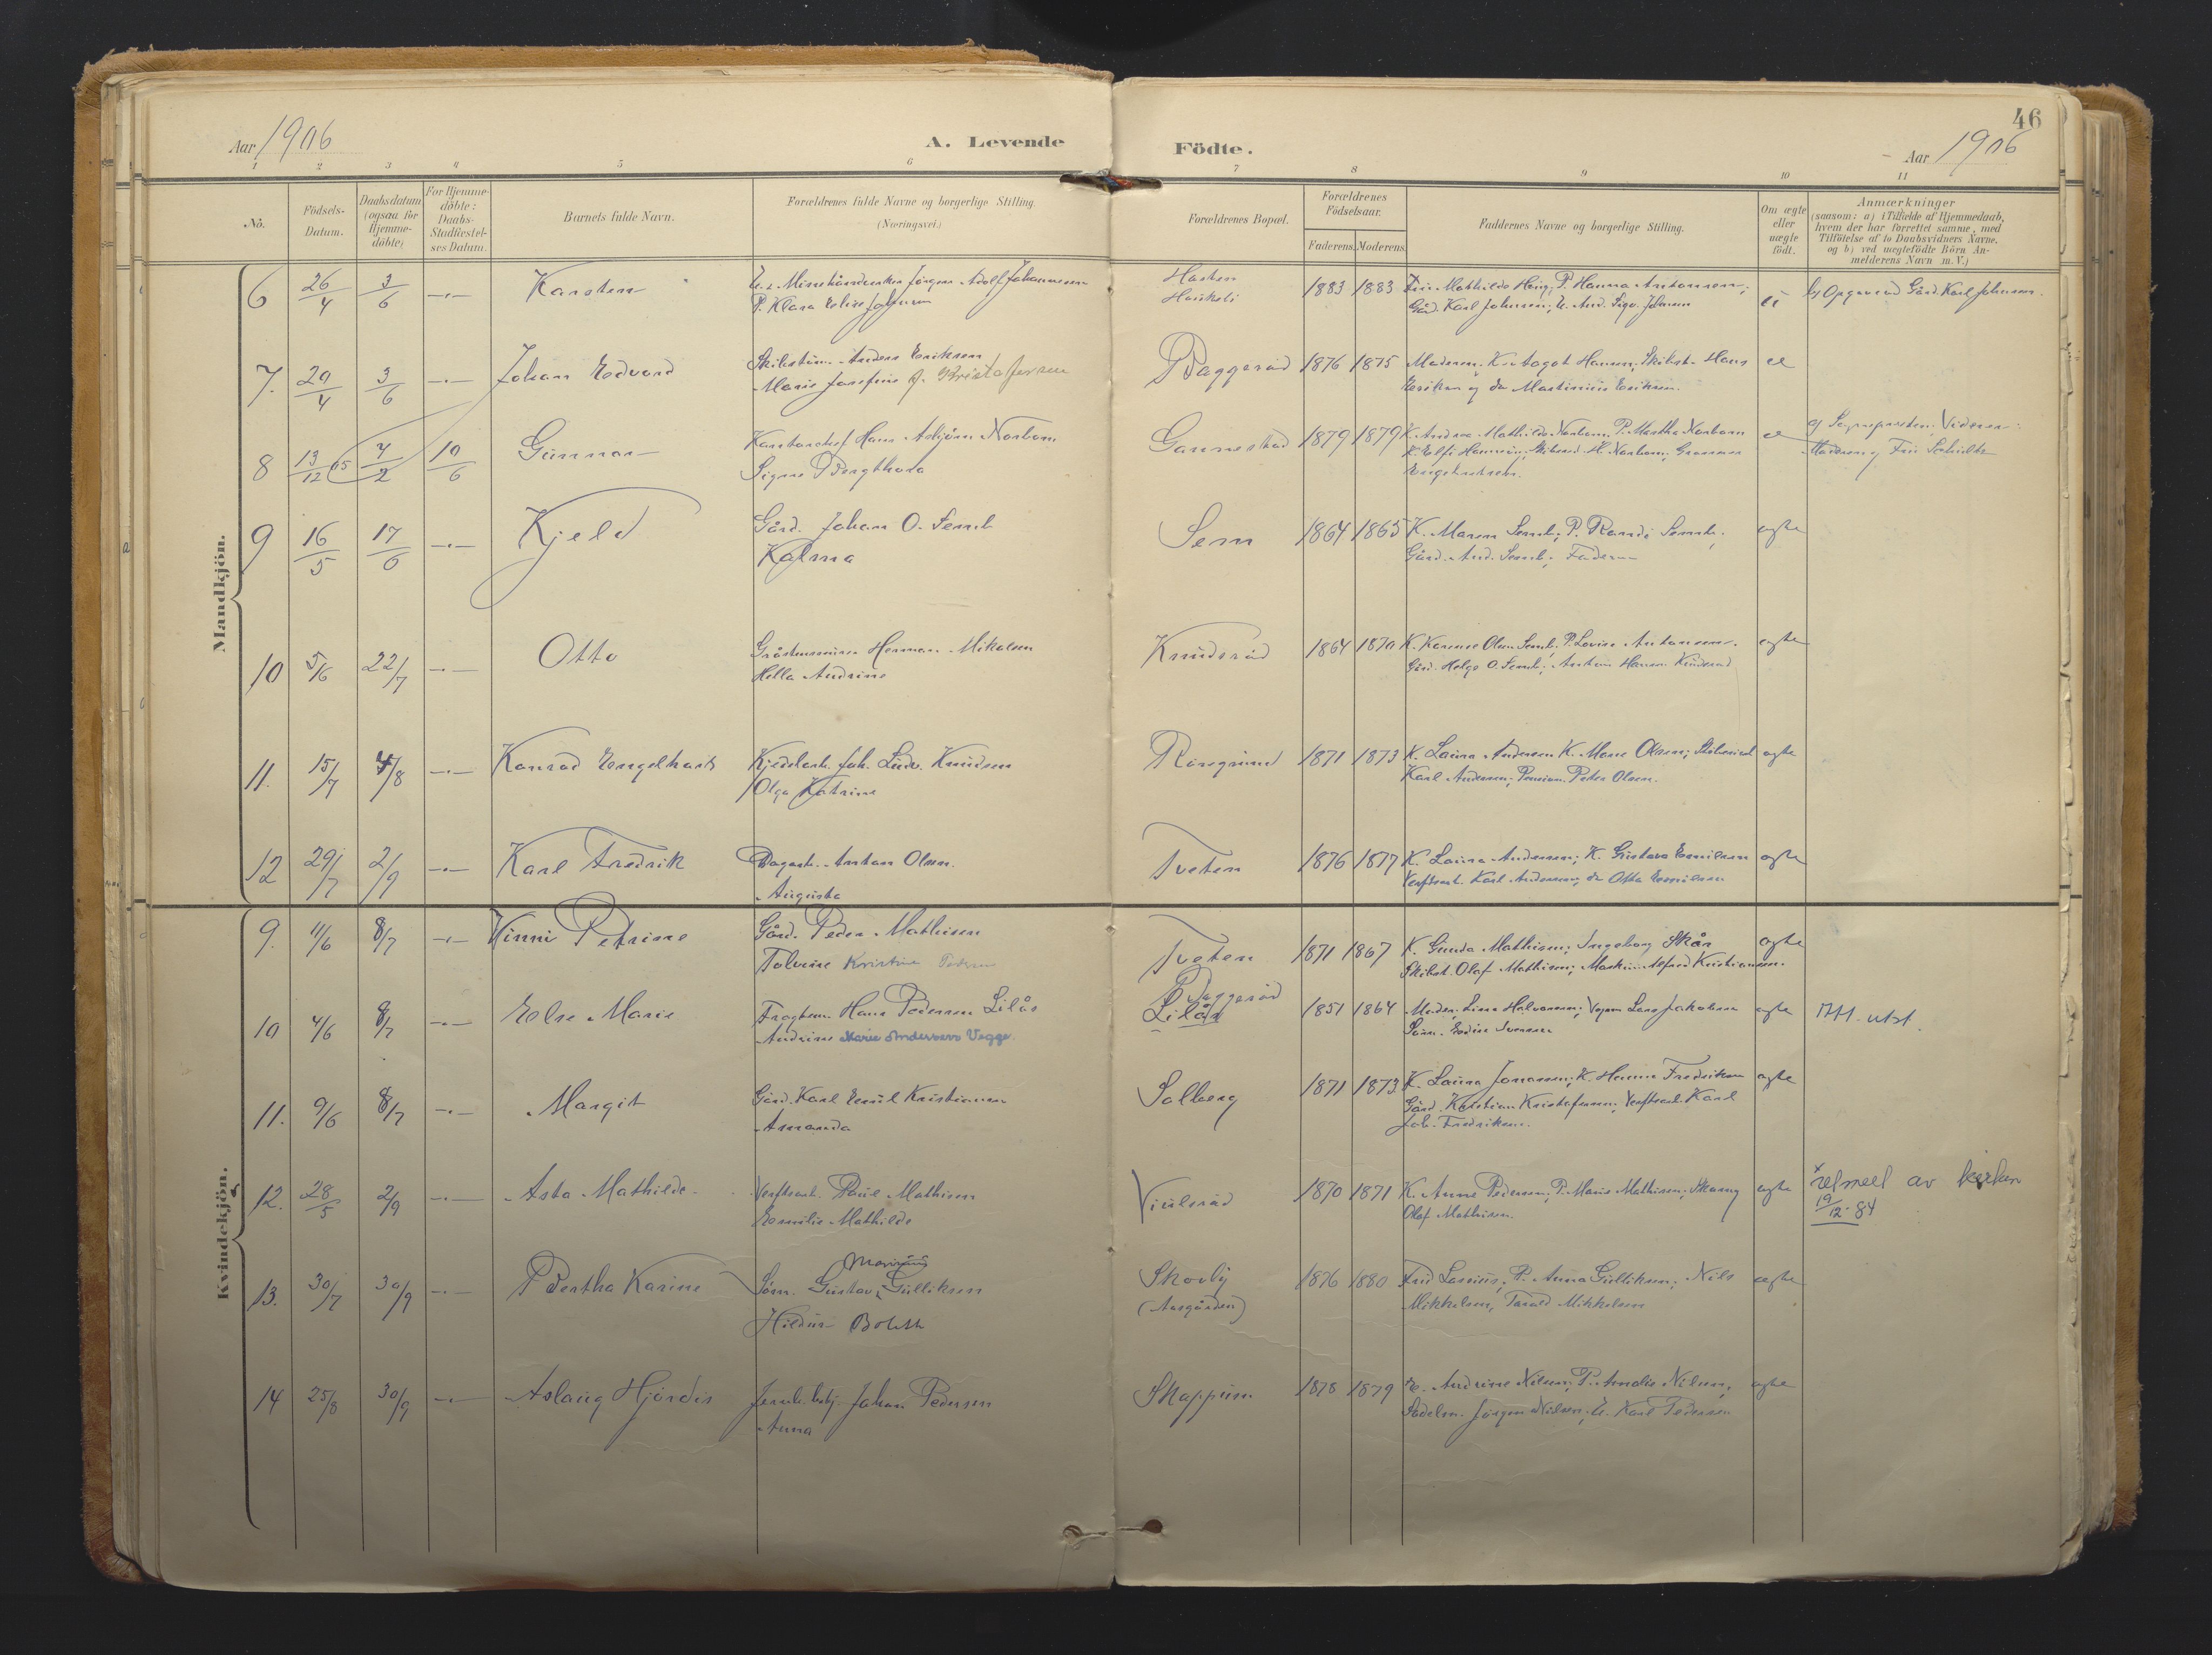 46
Aar 1906
A. Levende
Födte.
Aar 1906
1 2 3 4 5 6 7 8 9 10 11
No.
Födsels-
Datum.
Daabsdatum
(ogsaa for
Hjemme-
döbte)
For Hjemme-
döbte:
Daabs-
Stadfæstel-
ses Datum.
Barnets fulde Navn.
Forældrenes fulde Navne og borgerlige Stilling.
(Næringsvei.)
Forældrenes Bopæl.
Forældrenes
Födselsaar.
Faderens. Moderens.
Faddernes Navne og borgerlige Stilling.
Om ægte
eller
uægte
födt.
Anmærkninger
(saasom: a) i Tilfælde af Hjemmedaab,
hvem der har forrettet samme, med
Tilföielse af to Daabsvidners Navne.
og b) ved uægtefödte Börn An-
melderens Navn m.V.)
Mandkjön.
6 26/4 3/6 Karsten
Adolf Johannessen
P. Klara Elise
1883 1883
P. Hanna Antonsen;
Gård. Karl Johnsen;
u
b) Opgave ved Gård. Karl Johnsen.
7. 29/4 3/6 Johan Edvard
Anders Eriksen
Marie Josefine f. Kristofersen
Baggeröd 1876 1875
Moderen; K. Aagot Hansen; Skibst. Hans
Eriksen og do Martinius Eriksen.
8 13/12 05 4/2 10/6 Gunnar
Kontorchef Hans Asbjörn Norbom
Signe Bergthora
Gannestad 1879 1879
K. Andrea Mathilde Norbom; P. Martha Norbom
9 16/5 17/6 Kjeld
Gård. Johan O. Semb
Kalma
Sem 1864 1865
K. Maren Semb; P. Randi Semb;
Gård. And. Semb; Faderen
ægte
10 5/6 22/7 Otto
Herman Mikalsen
Hella Andrine
Knudsröd 1864 1870
K. Karense Olsen Semb; P. Lovise Antonsen.
Gård. Helge O. Semb; Anton Hansen Knudsröd
ægte
11. 15/7 4/8 Konrad Engelhart
Kjedelarb. Joh. Ludv. Knudsen
Olga Katrine
Röregrund 1871 1873
K. Laura Andersen K. Marie Olsen;
Karl Andersen; Pension. Peter Olsen.
ægte
12 29/7 2/9 Karl Fredrik
Dagarb. Anton Olsen.
Augusta
Tveten 1876 1877
K. Laura Andersen; K. Gustava Emilsen
Verftsarb. Karl Andersen; do Otto Emilsen
ægte
Kvindekjön.
9. 11/6 8/7 Vinni Petrine
Gård. Peder Mathisen
Tolvine Kristine Pedersen
Tveten 1871 1867
K. Gunda Mathisen; Ingeborg Skån
Skibst. Olaf Mathisen; Maskin. Alfred Kristiansen.
ægte
10 4/6 8/7 Else Marie
Fragtem. Hans Pedersen Liläs
Andrine Marie Andersens Vegge.
Baggeröd
Liläs 1851 1864
Moder; Lina Halvorsen; Lars Jakobsen
Söm. Edvin Svensen
ægte
Att. utst.
11. 9/6 8/7 Margit
Gård. Karl Emil Kristiansen
Amanda
Solberg 1871 1873
K. Laura Jonassen; K. Hanna Fredriksen
Gård. Kristian Kristofersen; Verftsarb. Karl
Joh. Fredriksen.
ægte
12. 28/5 2/9 Asta Mathilde
Verftsarb. Paul Mathisen
Emilie Mathilde
Viulsröd 1870 1871
K. Anna Pedersen; P. Marie Mathisen;
Olaf Mathisen.
ægte
utmeldt av kirken
19/12-84
13. 30/7 30/9 Bertha Karine
Marinius
Söm. Gustav Gulliksen
Hildur Boleth
Skovly
(Aasgården)
1876 1880
P. Anna Gulliksen; Nils
Mikkelsen, Tarald Mikkelsen
ægte
14 25/8 30/9 Aslaug Hjördis
Jernb. betj. Johan Pedersen
Anna
Skoppum 1878 1879
E. Andrine Nilsen; P. Amalie Nilsen,
Sadelm. Jörgen Nilsen; U. Karl Pedersen
ægte